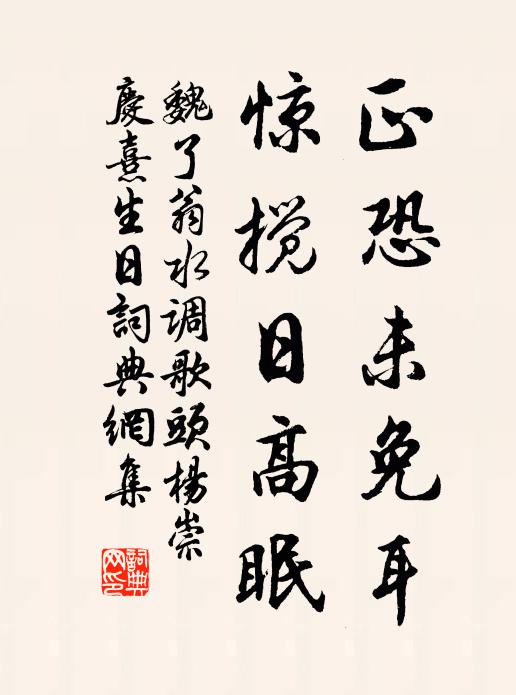 正恐未免耳
惊搅日高眠
魏了翁水调歌头杨崇
庆熹生日詞典網集
詞典网印